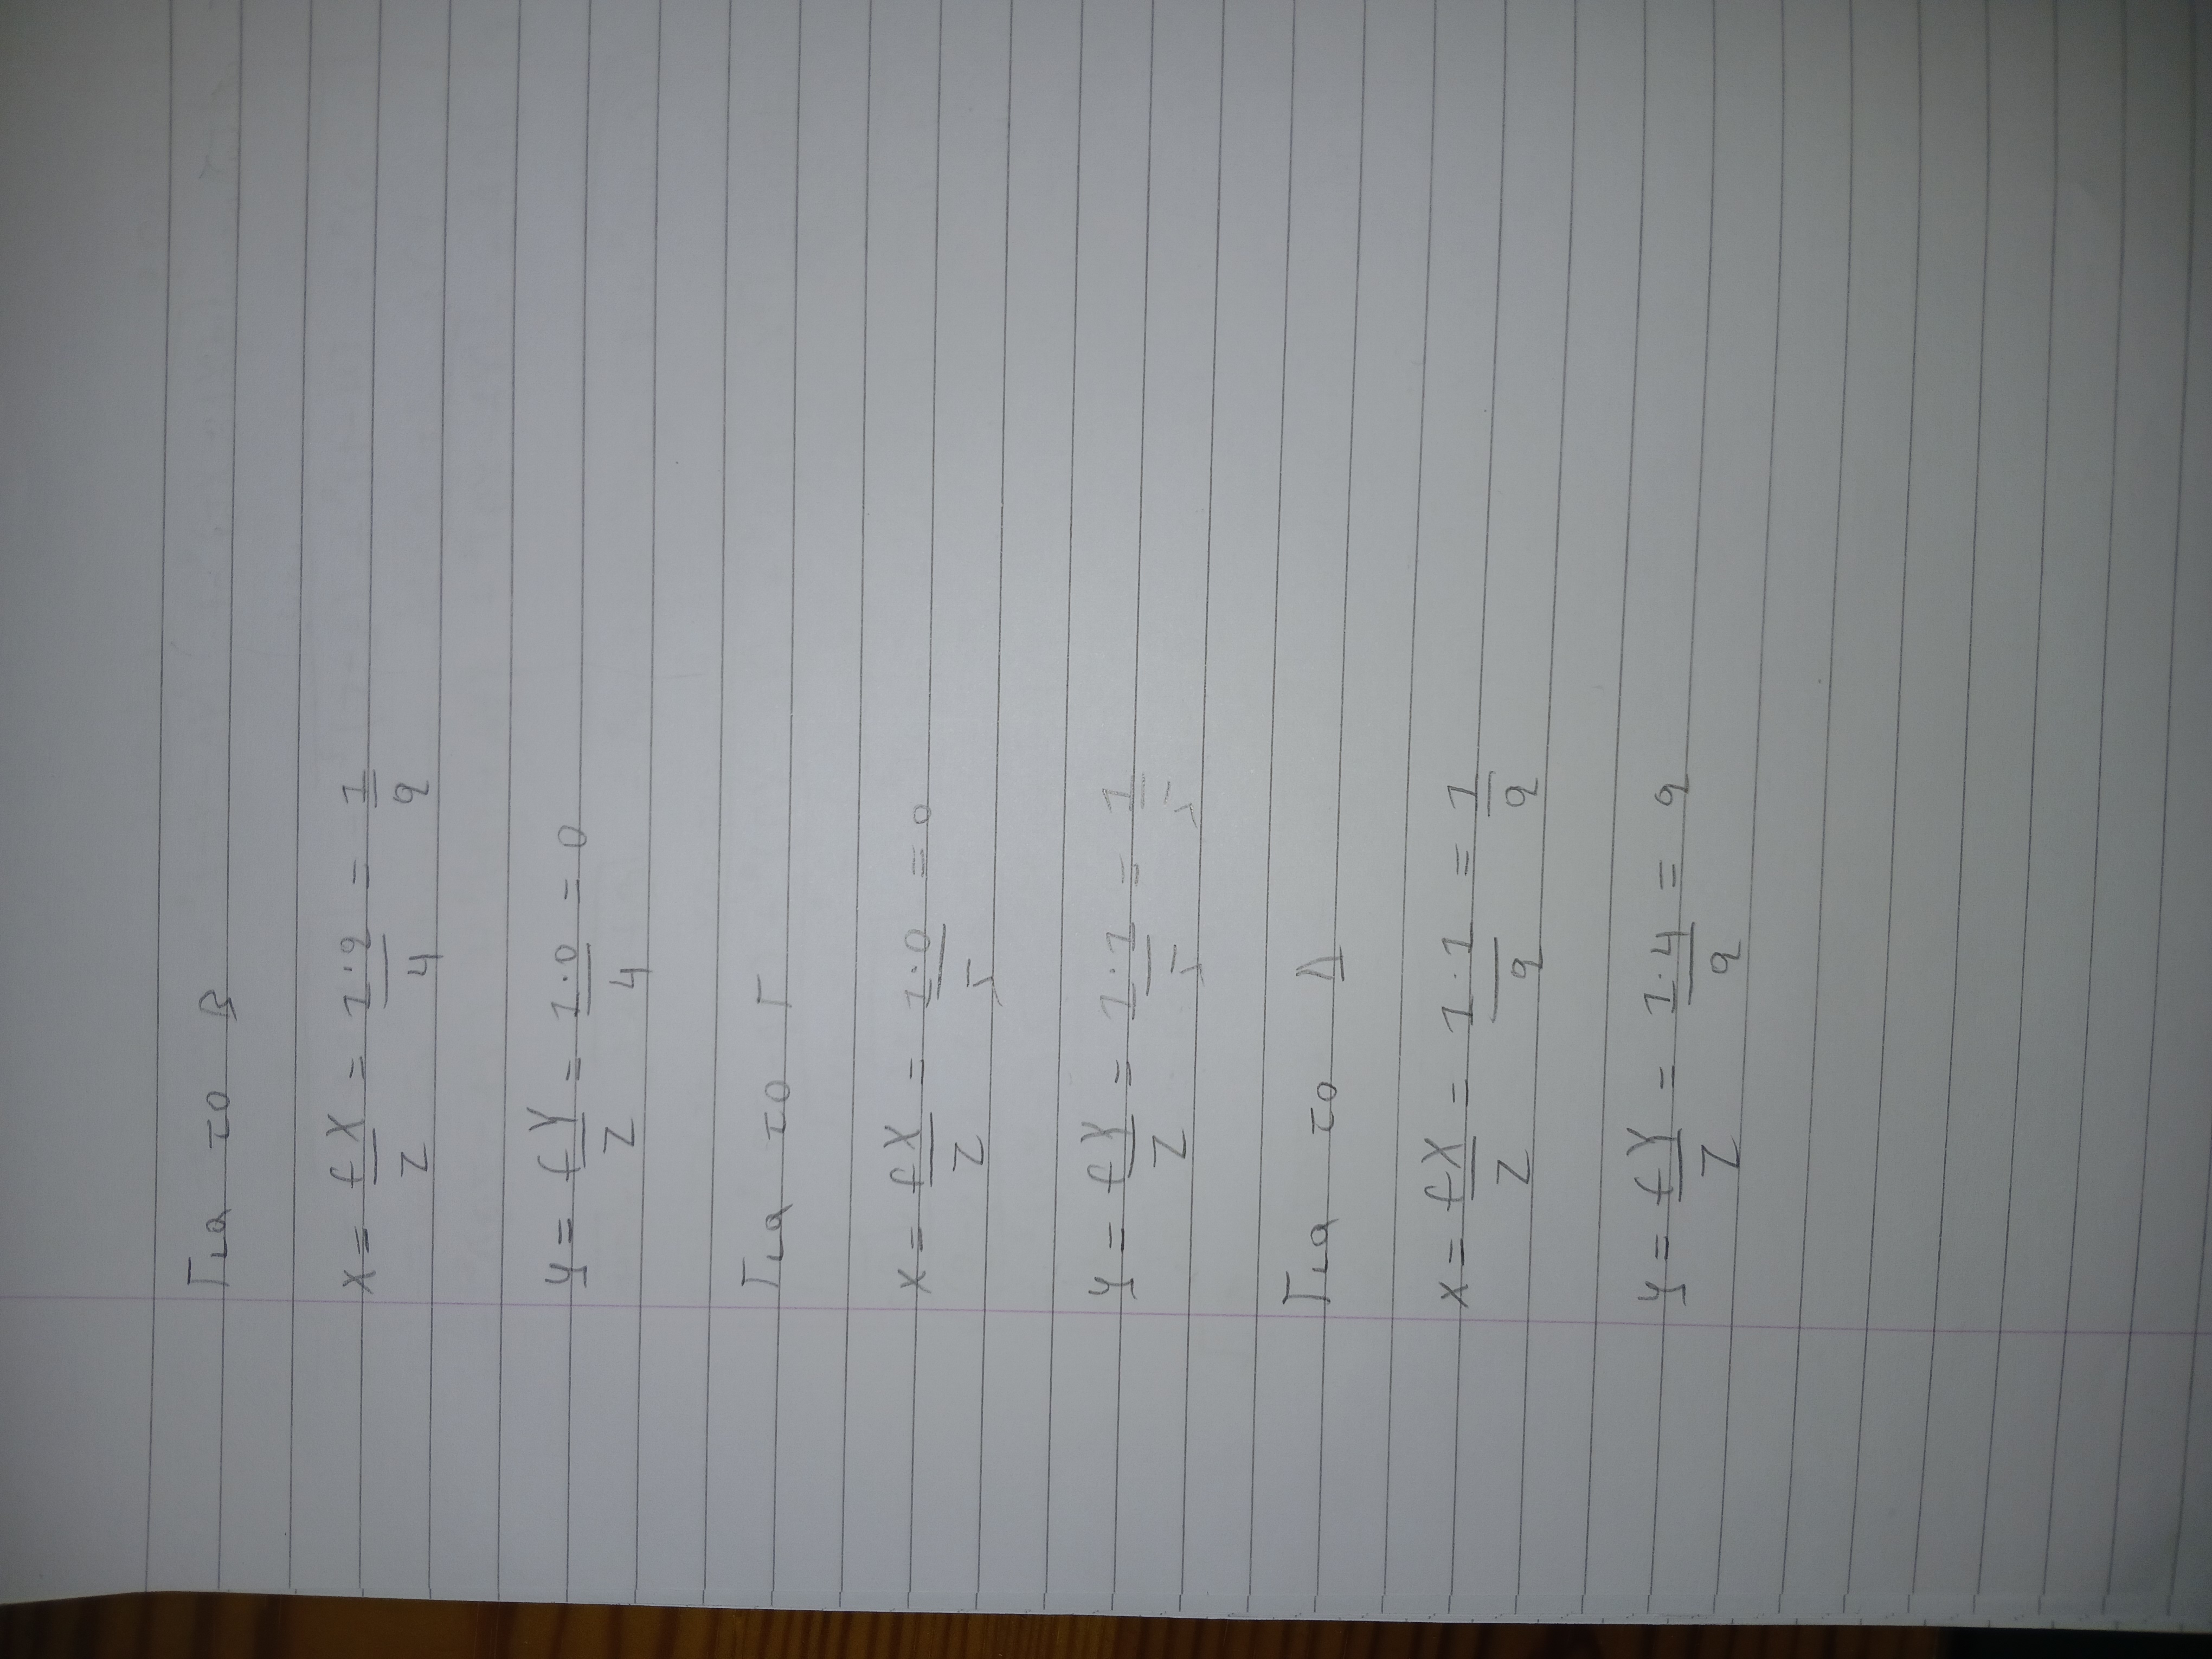 Για το Β
x = fX/Z = 1·2/4 = 1/2
y = fY/Z = 1·0/4 = 0
Για το Γ
x = fX/Z = 1·0/5 = 0
y = fY/Z = 1·1/5 = 1/5
Για το Δ
x = fX/Z = 1·1/2 = 1/2
y = fY/Z = 1·4/2 = 2